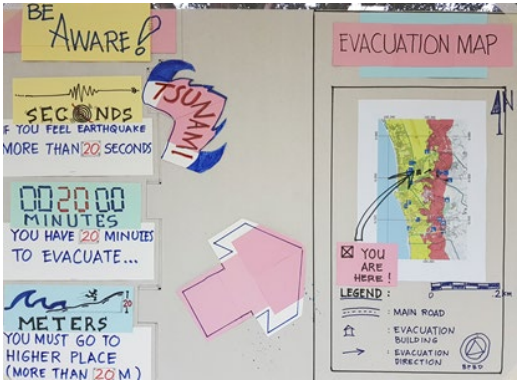 BE
AWARE!
SECONDS
IF YOU FEEL EARTHQUAKE
MORE THAN 20 SECONDS
TSUNAMI
00 20 00
MINUTES
YOU HAVE 20 MINUTES
TO EVACUATE...
20
METERS
YOU MUST GO TO
HIGHER PLACE
(MORE THAN 20 M)
EVACUATION MAP
N
YOU
ARE
HERE!
LEGEND:
0 2 KM
: MAIN ROAD
: EVACUATION
BUILDING
: EVACUATION
DIRECTION